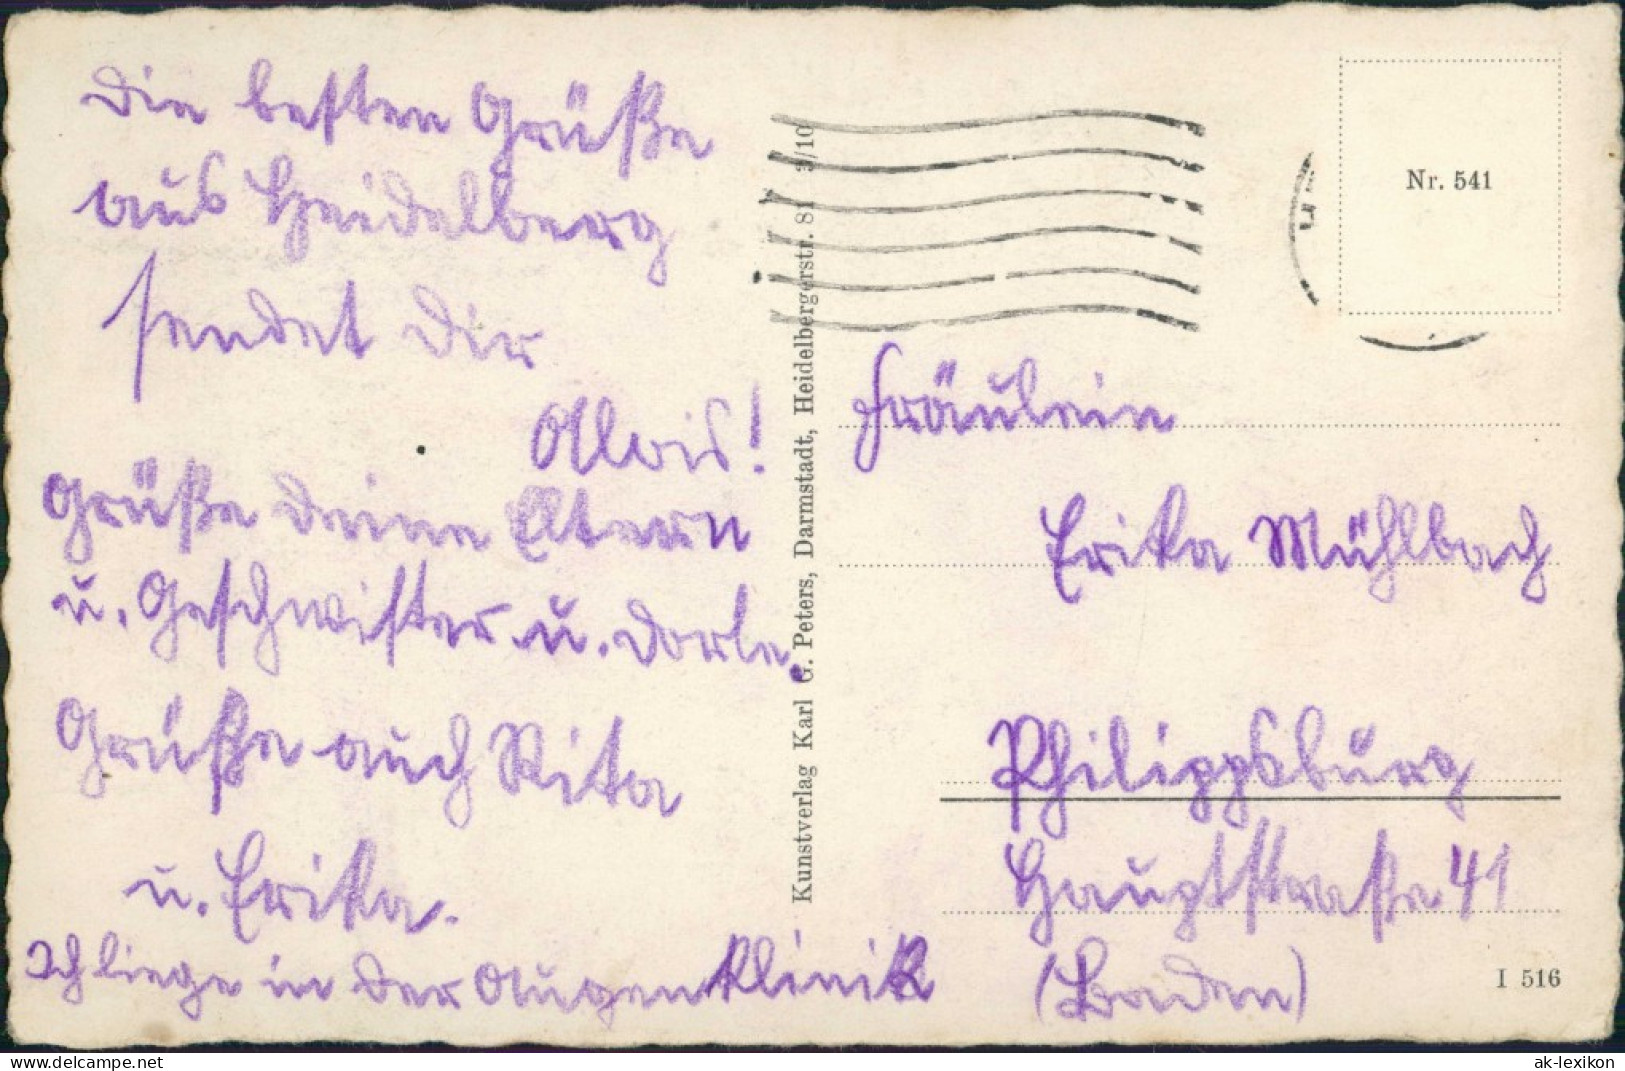 Die besten Grüße
aus Heidelberg
sendet Dir
Alois!
Grüße deine Eltern
u. Geschwister u. Dorle.
Grüße auch Rita
u. Erika.
Ich liege in der Augenklinik
Kunstverlag Karl G. Peters, Darmstadt, Heidelbergerstr. 81 3/10
Nr. 541
Fräulein
Erika Mühlbach
Philippsburg
Hauptstraße 41
(Baden)
I 516
delcampe.net
ak-lexikon